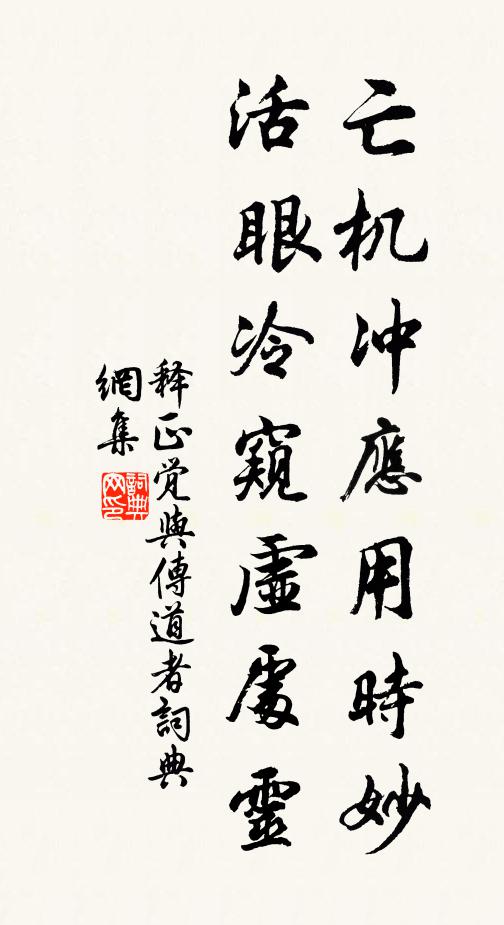 亡机冲應用時妙
活眼冷窺虛處靈
释正觉與傳道者詞典
網集
詞典
网印